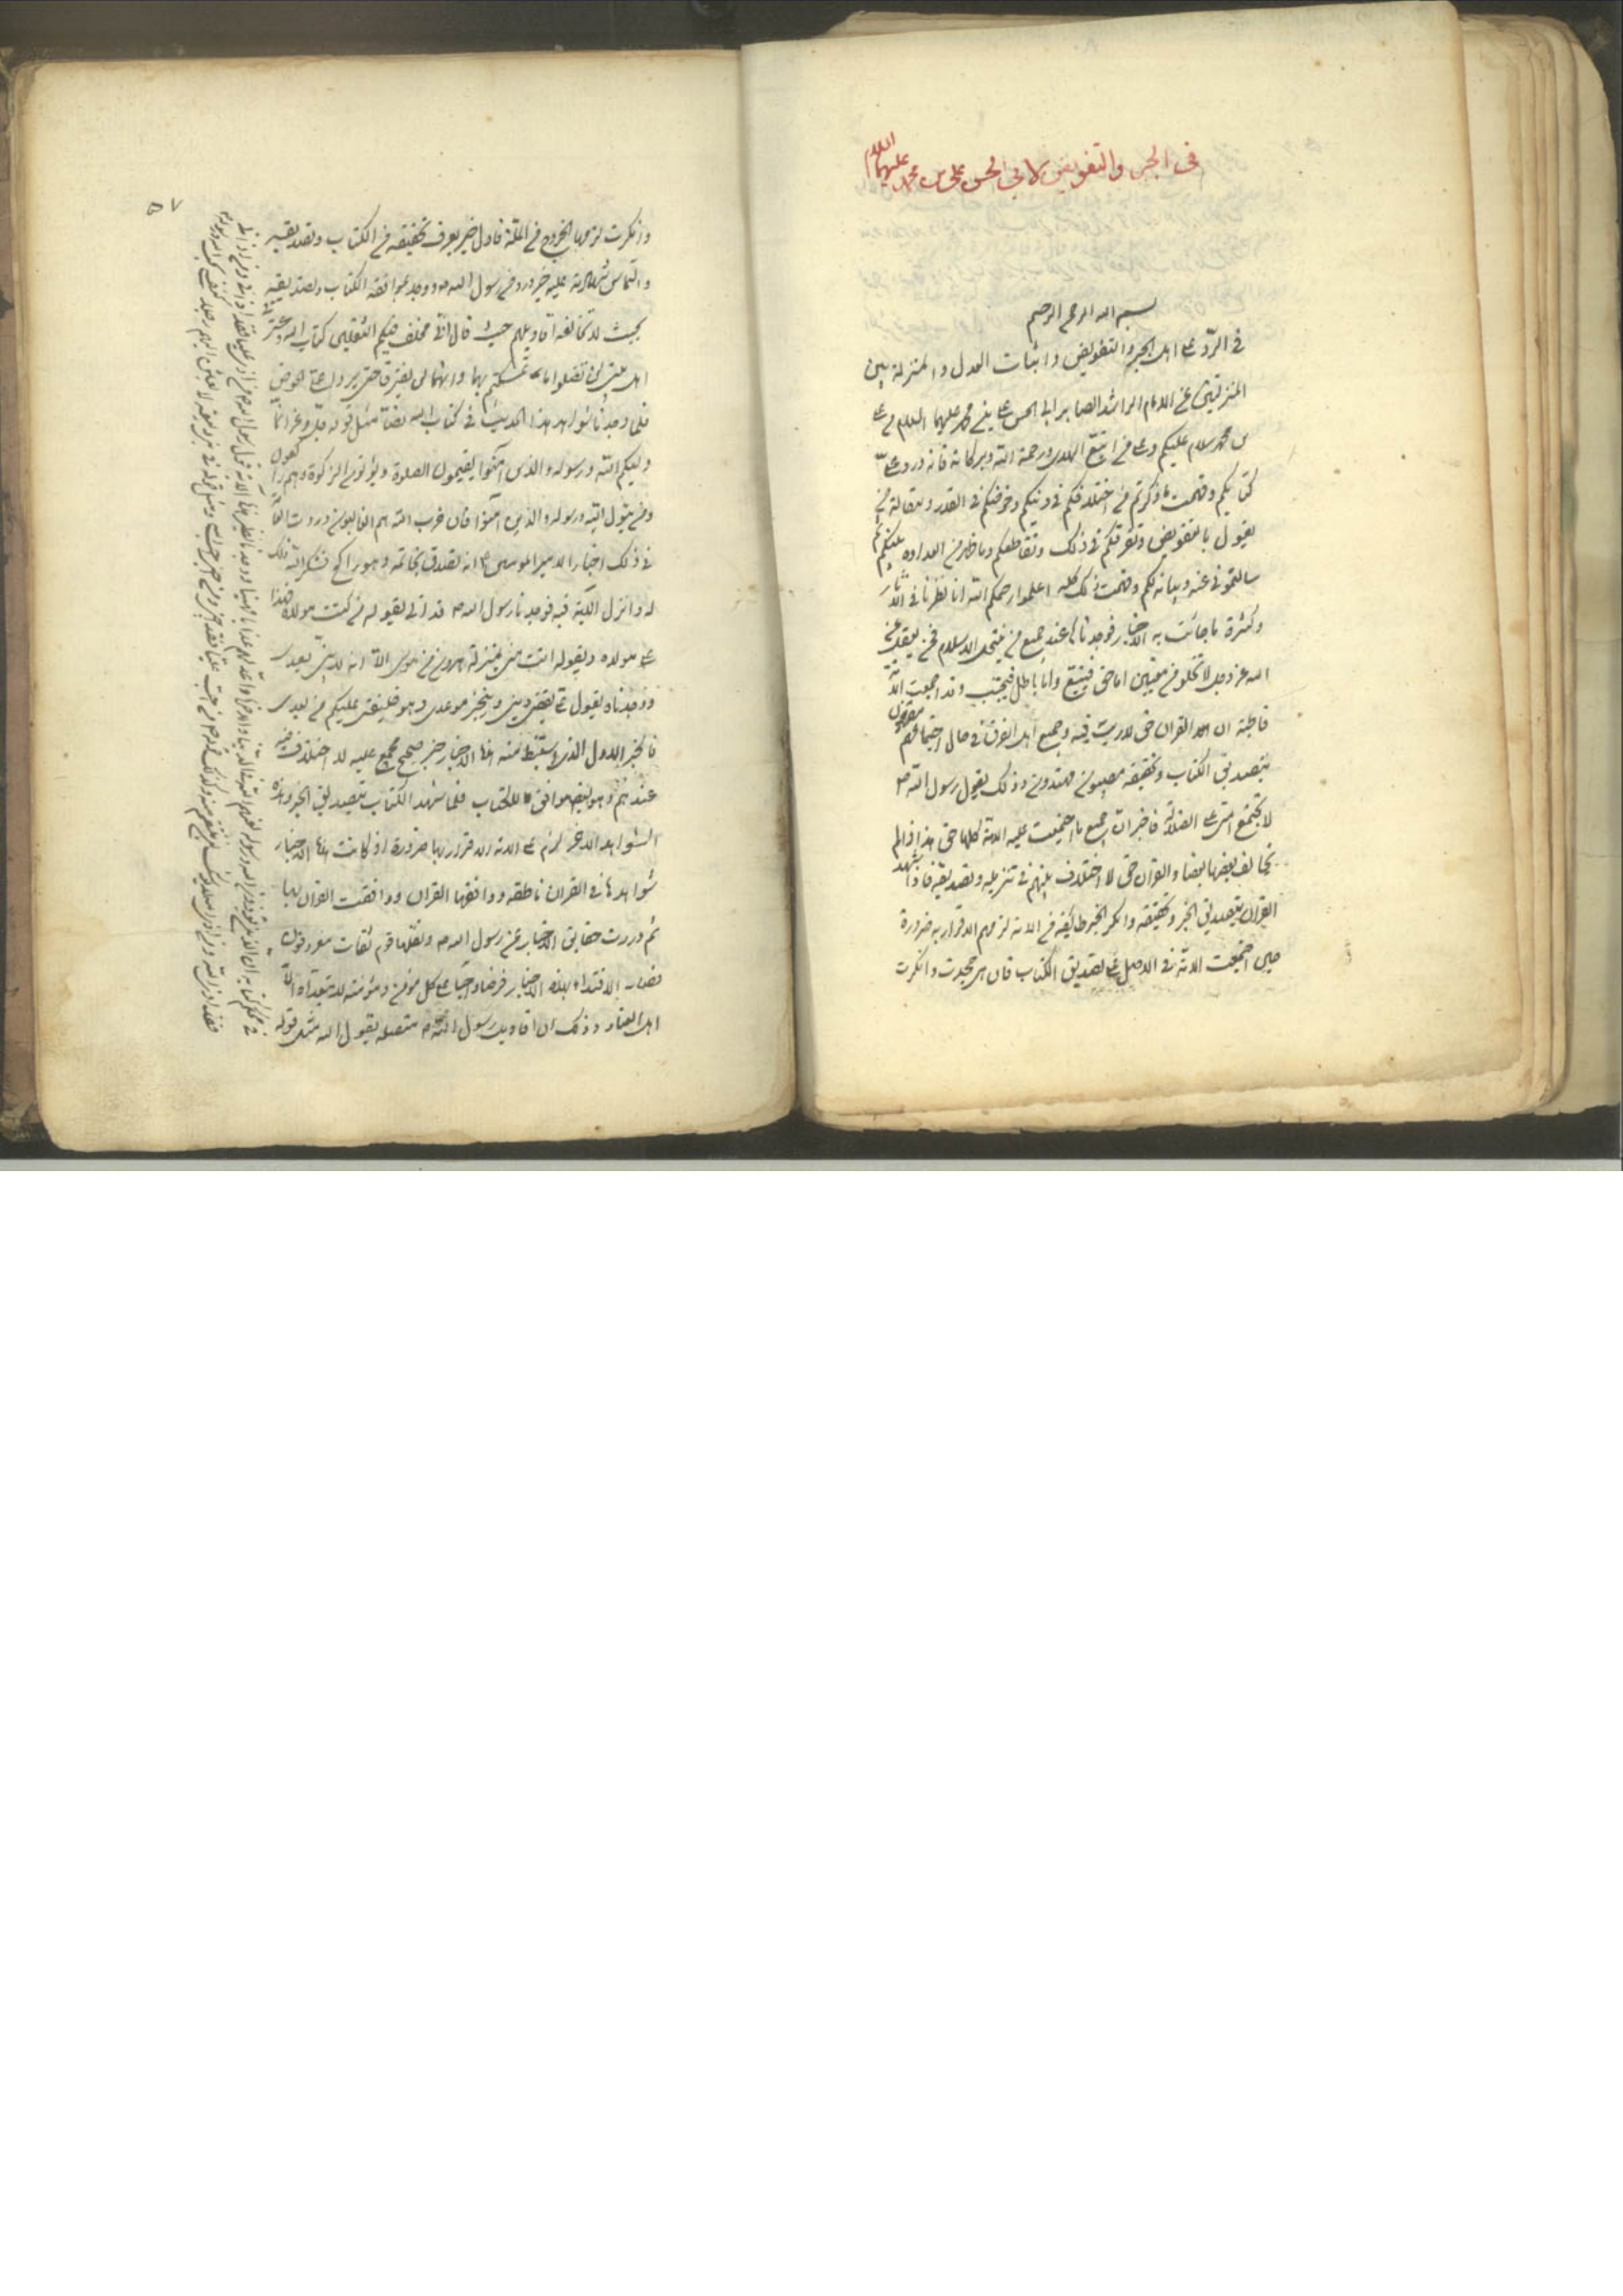 في الجبر والتفويض لابي الحسن علي بن محمد عليهما السلام
بسم الله الرحمن الرحيم
في الرد على اهل الجبر والتفويض واثبات العدل والمنزلة بين
المنزلتين عن الامام الراشد الصابر ابي الحسن علي بن محمد عليهما السلام من علي
بن محمد سلام عليكم وعلى من اتبع الهدى ورحمة الله وبركاته فانه ورد علي
كتابكم وفهمت ما ذكرتم من اختلافكم في دينكم وخوضكم في القدر ومقالة من
يقول بالتفويض وتفرقكم في ذلك وتقاطعكم وما ظهر من العداوة بينكم ثم
سالتموني عنه وبيانه لكم وفهمت ذلك كله اعلموا رحمكم الله انا نظرنا في الاثار
وكثرة ما جائت به الاخبار فوجدناها عند جميع من ينتحل الاسلام ممن يعقل عن
الله عز وجل لا تخلو من معنيين اما حق فيتبع واما باطل فيجتنب وقد اجتمعت الامة
قاطبة ان القران حق لا ريب فيه وجميع اهل الفرق في حال اجتماعهم مقرون
بتصديق الكتاب وتحقيقه مصيبون مهتدون وذلك بقول رسول الله ص
لا تجتمع امتي على الضلالة فاخبر ان جميع ما اجتمعت عليه الامة كلها حق هذا اذا لم
يخالف بعضها بعضا والقران حق لا اختلاف بينهم في تنزيله وتصديقه فاذا شهد
القران بتصديق الخبر وتحقيقه وانكر الخبر طائفة من الامة لزمهم الاقرار به ضرورة
حين اجتمعت الامة في الاصل على تصديق الكتاب فان هي جحدت وانكرت
٥٧
وانكرت لزمها الخروج من الملة فاول خبر يعرف تحقيقه من الكتاب وتصديقه
والتماس شهادته عليه خبر ورد عن رسول الله ص ووجد بموافقة الكتاب وتصديقه
بحيث لا تخالفه اقاويلهم حيث قال اني مخلف فيكم الثقلين كتاب الله وعترتي
اهل بيتي لن تضلوا ما تمسكتم بهما وانهما لن يفترقا حتى يردا علي الحوض
فلما وجدنا شواهد هذا الحديث في كتاب الله نصا مثل قوله جل وعز انما
وليكم الله ورسوله والذين آمنوا الذين يقيمون الصلوة ويؤتون الزكوة وهم راكعون
ومن يتول الله ورسوله والذين آمنوا فان حزب الله هم الغالبون وروت العامة
في ذلك اخبارا لامير المومنين ع انه تصدق بخاتمه وهو راكع فشكر الله ذلك
له وانزل الآية فيه فوجدنا رسول الله ص قد اتى بقوله من كنت مولاه فهذا
علي مولاه وبقوله انت مني بمنزلة هرون من موسى الا انه لا نبي بعدي
ووجدناه يقول علي يقضي ديني وينجز موعدي وهو خليفتي عليكم من بعدي
فالخبر الاول الذي استنبط منه هذه الاخبار خبر صحيح مجمع عليه لا اختلاف فيه
عندهم وهو ايضا موافق للكتاب فلما شهد الكتاب بتصديق الخبر وهذه
الشواهد الاخر لزم على الامة الاقرار بها ضرورة اذ كانت هذه الاخبار
شواهدها في القران ناطقة ووافقها القران ووافقت القران بها
ثم وردت حقايق الاخبار عن رسول الله ص ونقلها قوم ثقات معروفون
فصار الاقتداء بهذه الاخبار فرضا واجبا على كل مؤمن ومؤمنة لا يتعداه الا
اهل العناد وذلك ان اقاويل رسول الله ص متصلة بقول الله مثل قوله
في محكم كتابه ان الذين يؤذون الله ورسوله لعنهم الله في الدنيا والاخرة واعد لهم عذابا مهينا ووجدنا نظير هذه الاية قول رسول الله ص من اذى عليا فقد اذاني ومن اذاني
فقد اذى الله